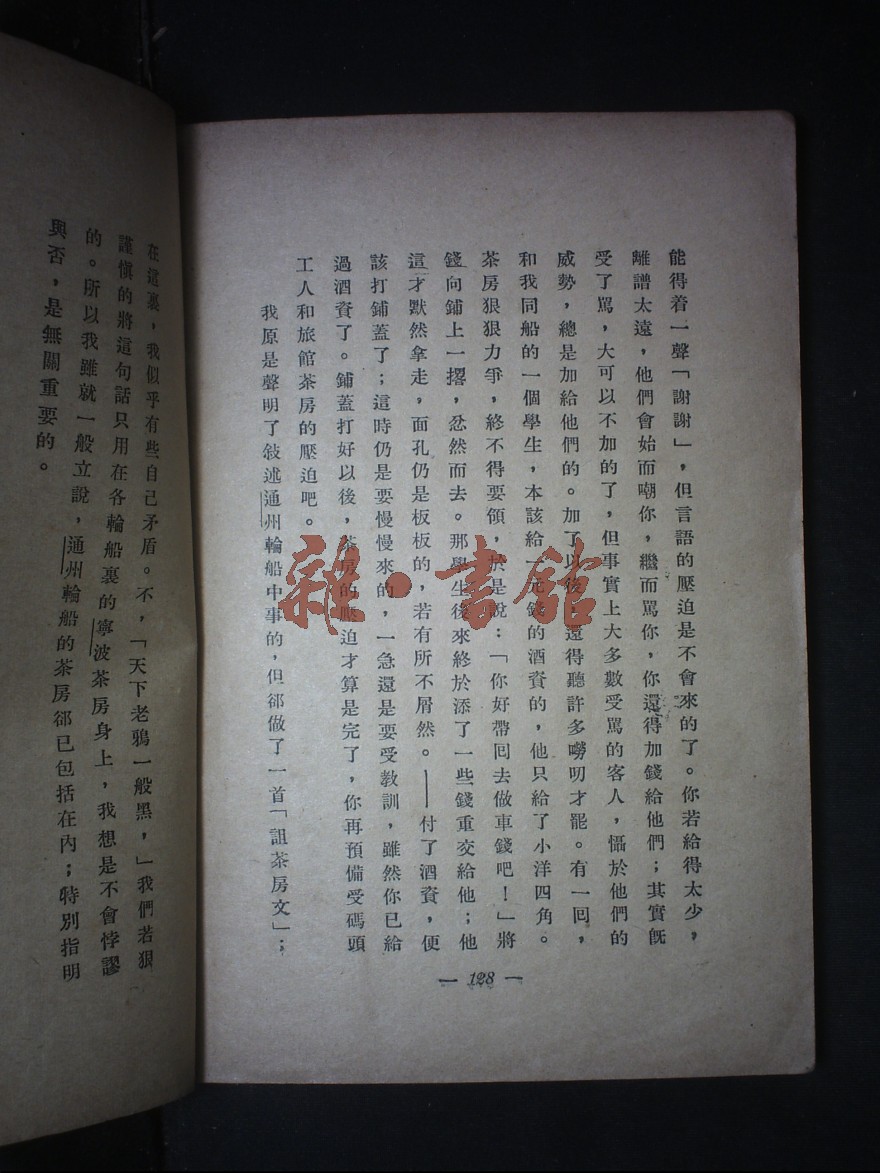 能得着一聲「謝謝」，但言語的壓迫是不會來的了。你若給得太少，
離譜太遠，他們會始而嘲你，繼而罵你，你還得加錢給他們；其實既
受了罵，大可以不加的了，但事實上大多數受罵的客人，懾於他們的
威勢，總是加給他們的。加了以後，還得聽許多嘮叨才罷。有一回，
和我同船的一個學生，本該給一元錢的酒資的，他只給了小洋四角。
茶房狠狠力爭，終不得要領，於是說：「你好帶回去做車錢吧！」將
錢向鋪上一撂，忿然而去。那學生後來終於添了一些錢重交給他；他
這才默然拿走，面孔仍是板板的，若有所不屑然。——付了酒資，便
該打鋪蓋了；這時仍是要慢慢來的，一急還是要受教訓，雖然你已給
過酒資了。鋪蓋打好以後，茶房的壓迫才算是完了，你再預備受碼頭
工人和旅館茶房的壓迫吧。
我原是聲明了敍述通州輪船中事的，但卻做了一首「詛茶房文」；
— 128 —
在這裏，我似乎有些自己矛盾。不，「天下老鴉一般黑，」我們若狠
謹愼的將這句話只用在各輪船裏的寧波茶房身上，我想是不會悖謬
的。所以我雖就一般立說，通州輪船的茶房卻已包括在內；特別指明
與否，是無關重要的。
雜·書館